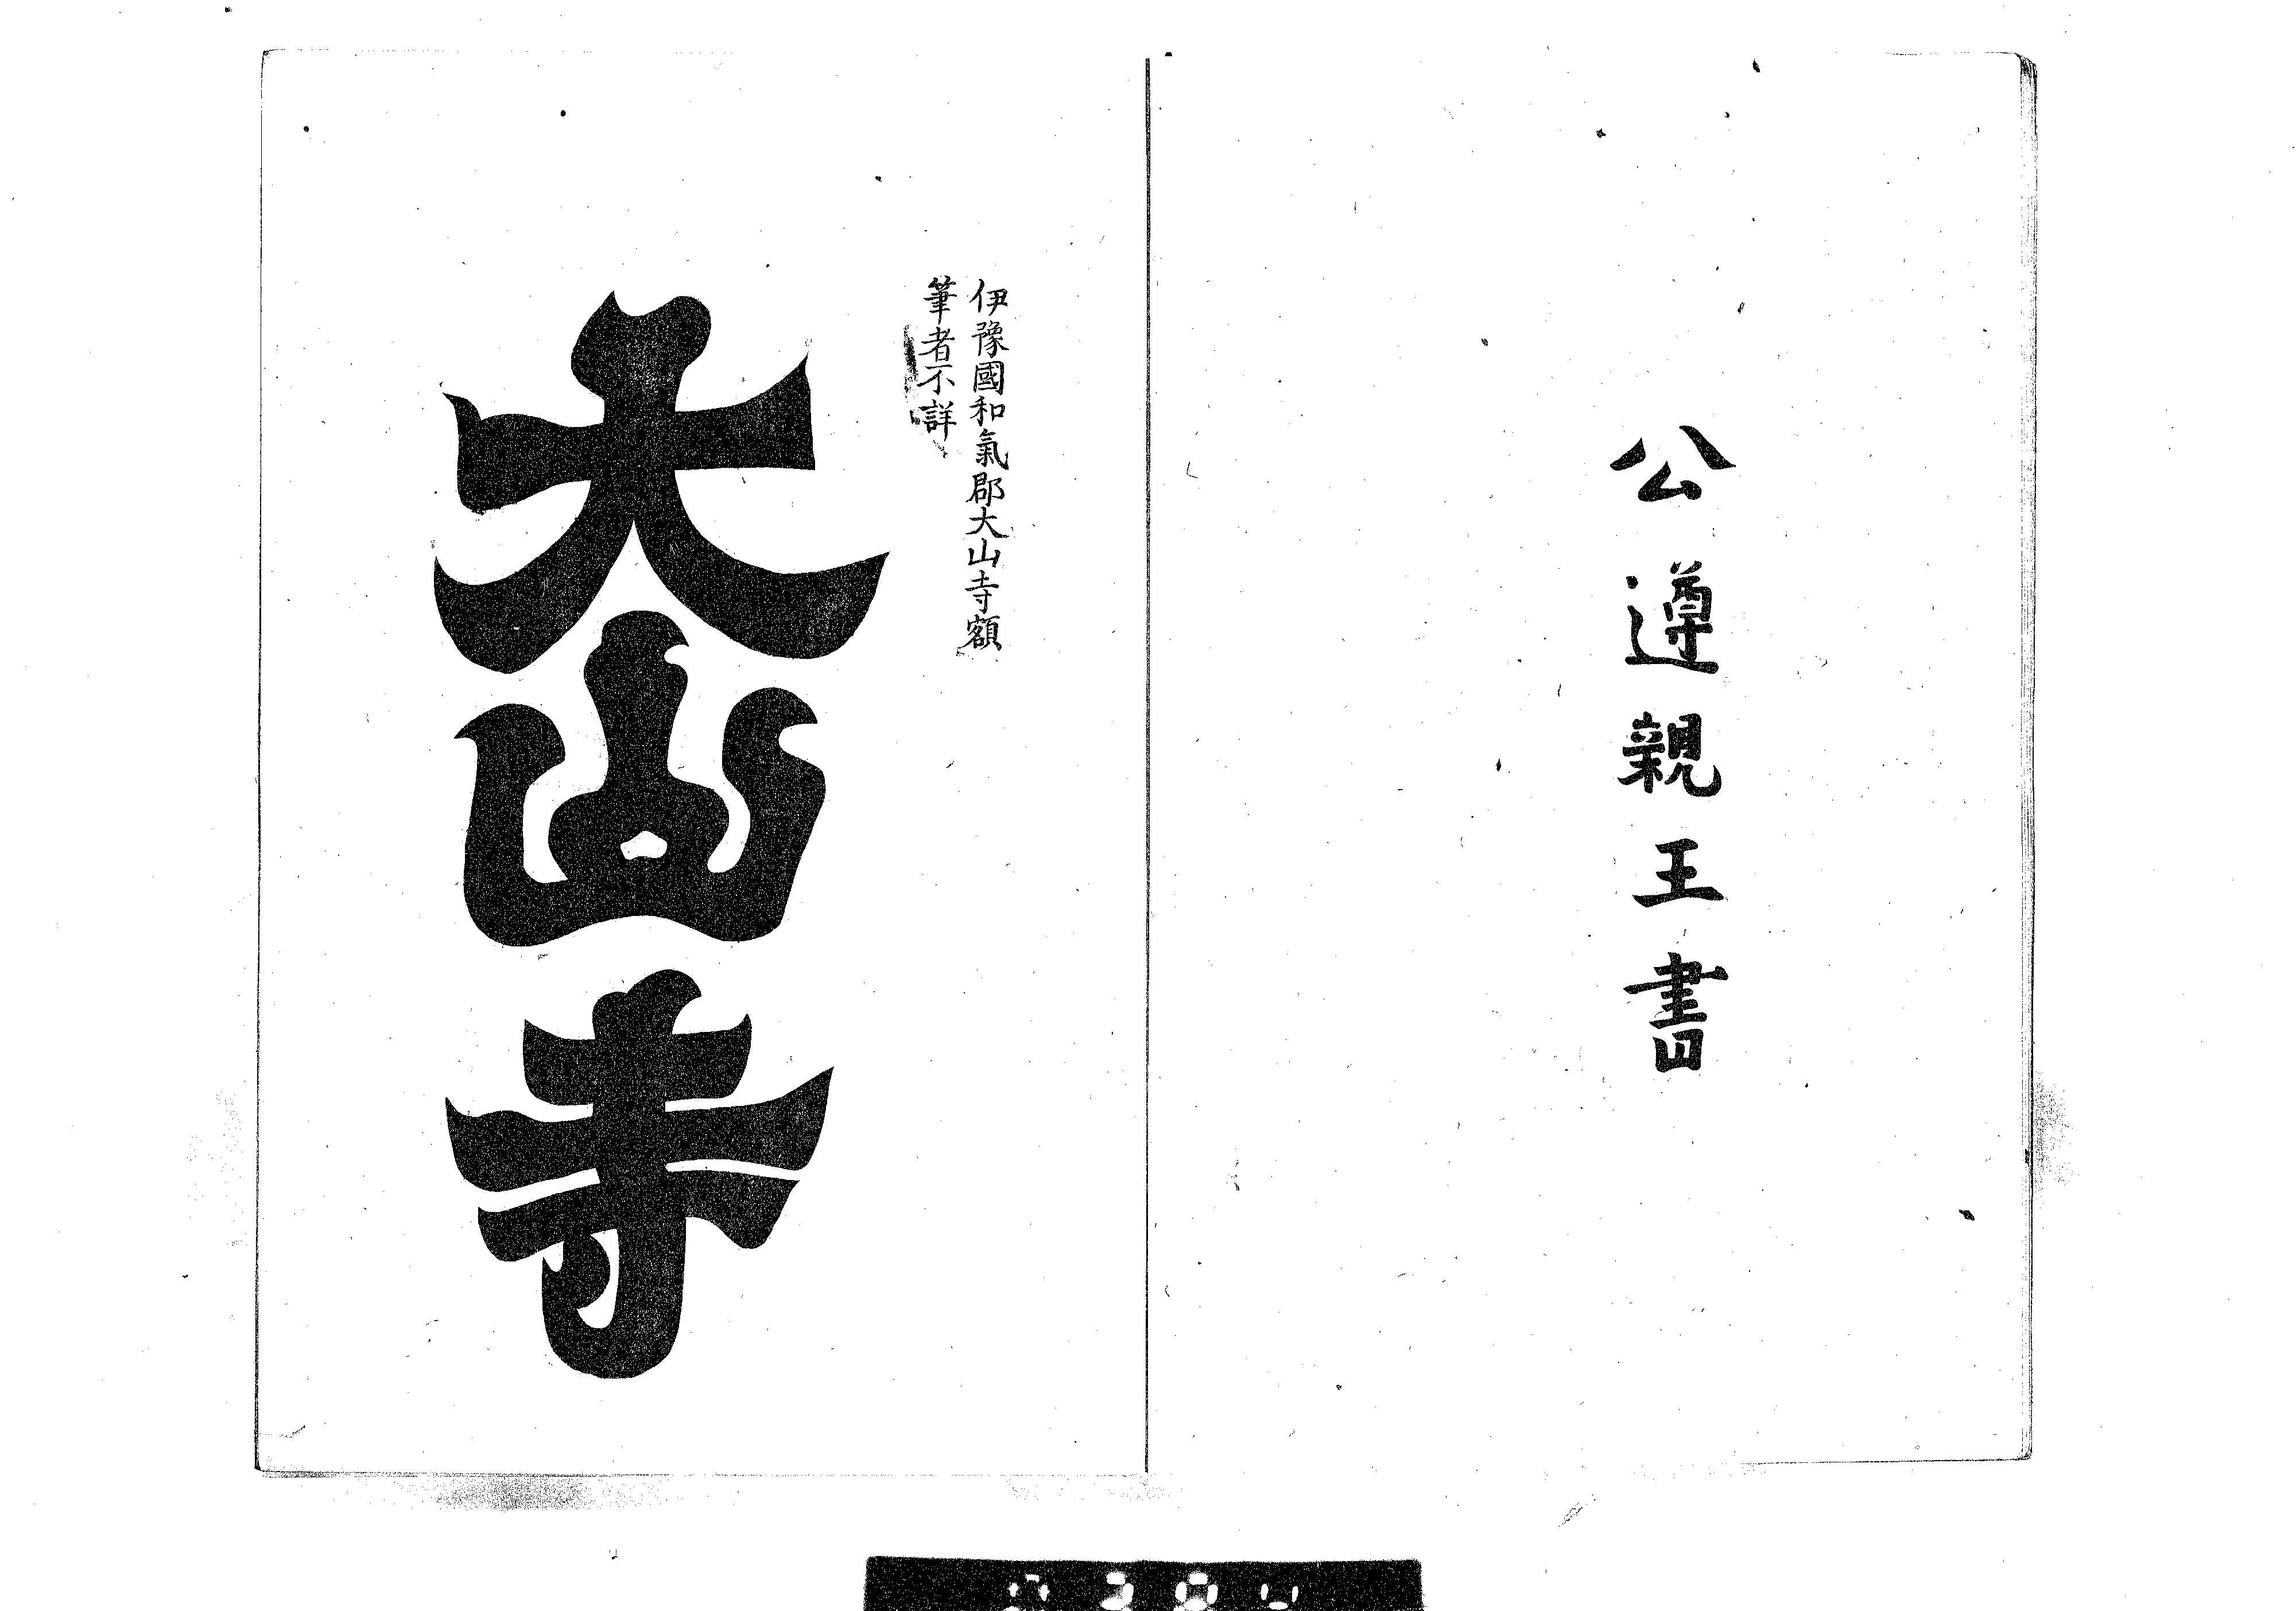 公遵親王書
伊豫國和氣郡大山寺額
筆者不詳
大山寺